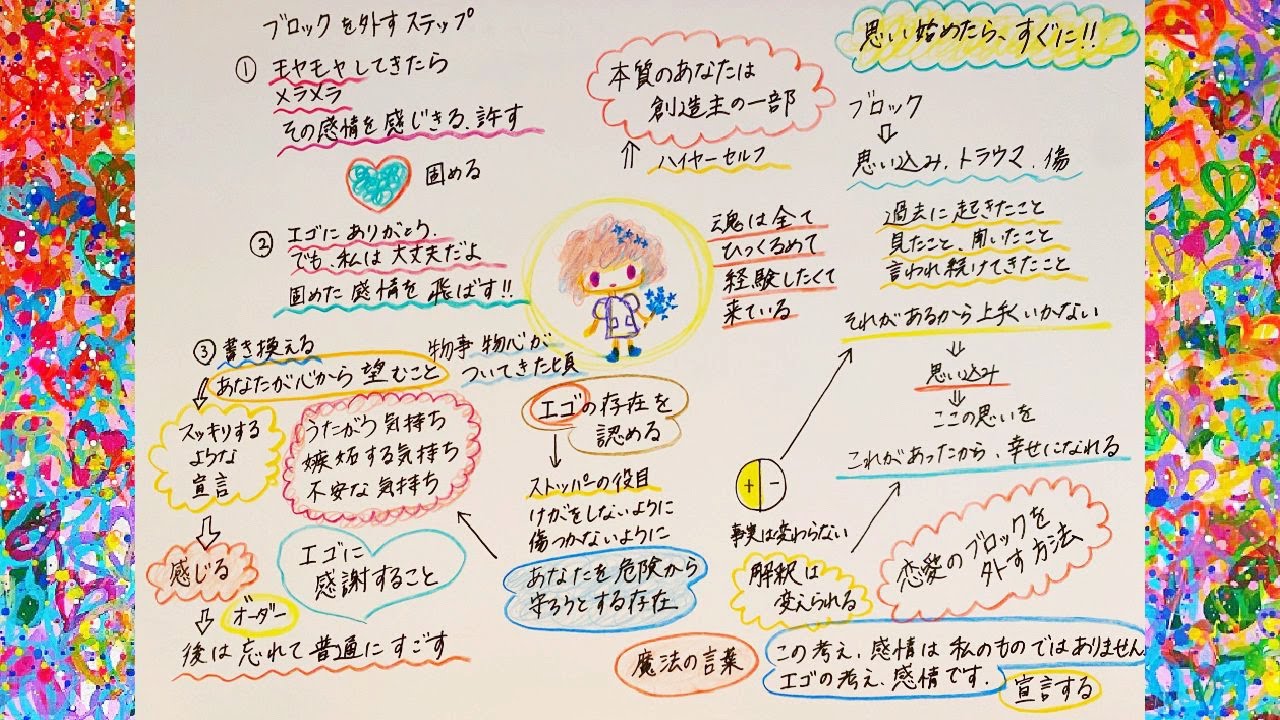 ブロックを外すステップ
① モヤモヤしてきたら
メラメラ
その感情を感じきる、許す
固める
② エゴにありがとう、
でも、私は大丈夫だよ
固めた感情を飛ばす!!
③ 書き換える
あなたが心から望むこと
スッキリする
ような
宣言
感じる
オーダー
後は忘れて普通にすごす
うたがう気持ち
嫉妬する気持ち
不安な気持ち
エゴに
感謝すること
本質のあなたは
創造主の一部
ハイヤーセルフ
魂は全て
ひっくるめて
経験したくて
来ている
物事 物心が
ついてきた頃
エゴの存在を
認める
ストッパーの役目
けがをしないように
傷つかないように
あなたを危険から
守ろうとする存在
思い始めたら、すぐに!!
ブロック
思い込み、トラウマ、傷
過去に起きたこと
見たこと、聞いたこと
言われ続けてきたこと
それがあるから上手くいかない
思い込み
ここの思いを
これがあったから、幸せになれる
+ -
事実は変わらない
解釈は
変えられる
恋愛のブロックを
外す方法
魔法の言葉
この考え、感情は私のものではありません
エゴの考え、感情です。
宣言する